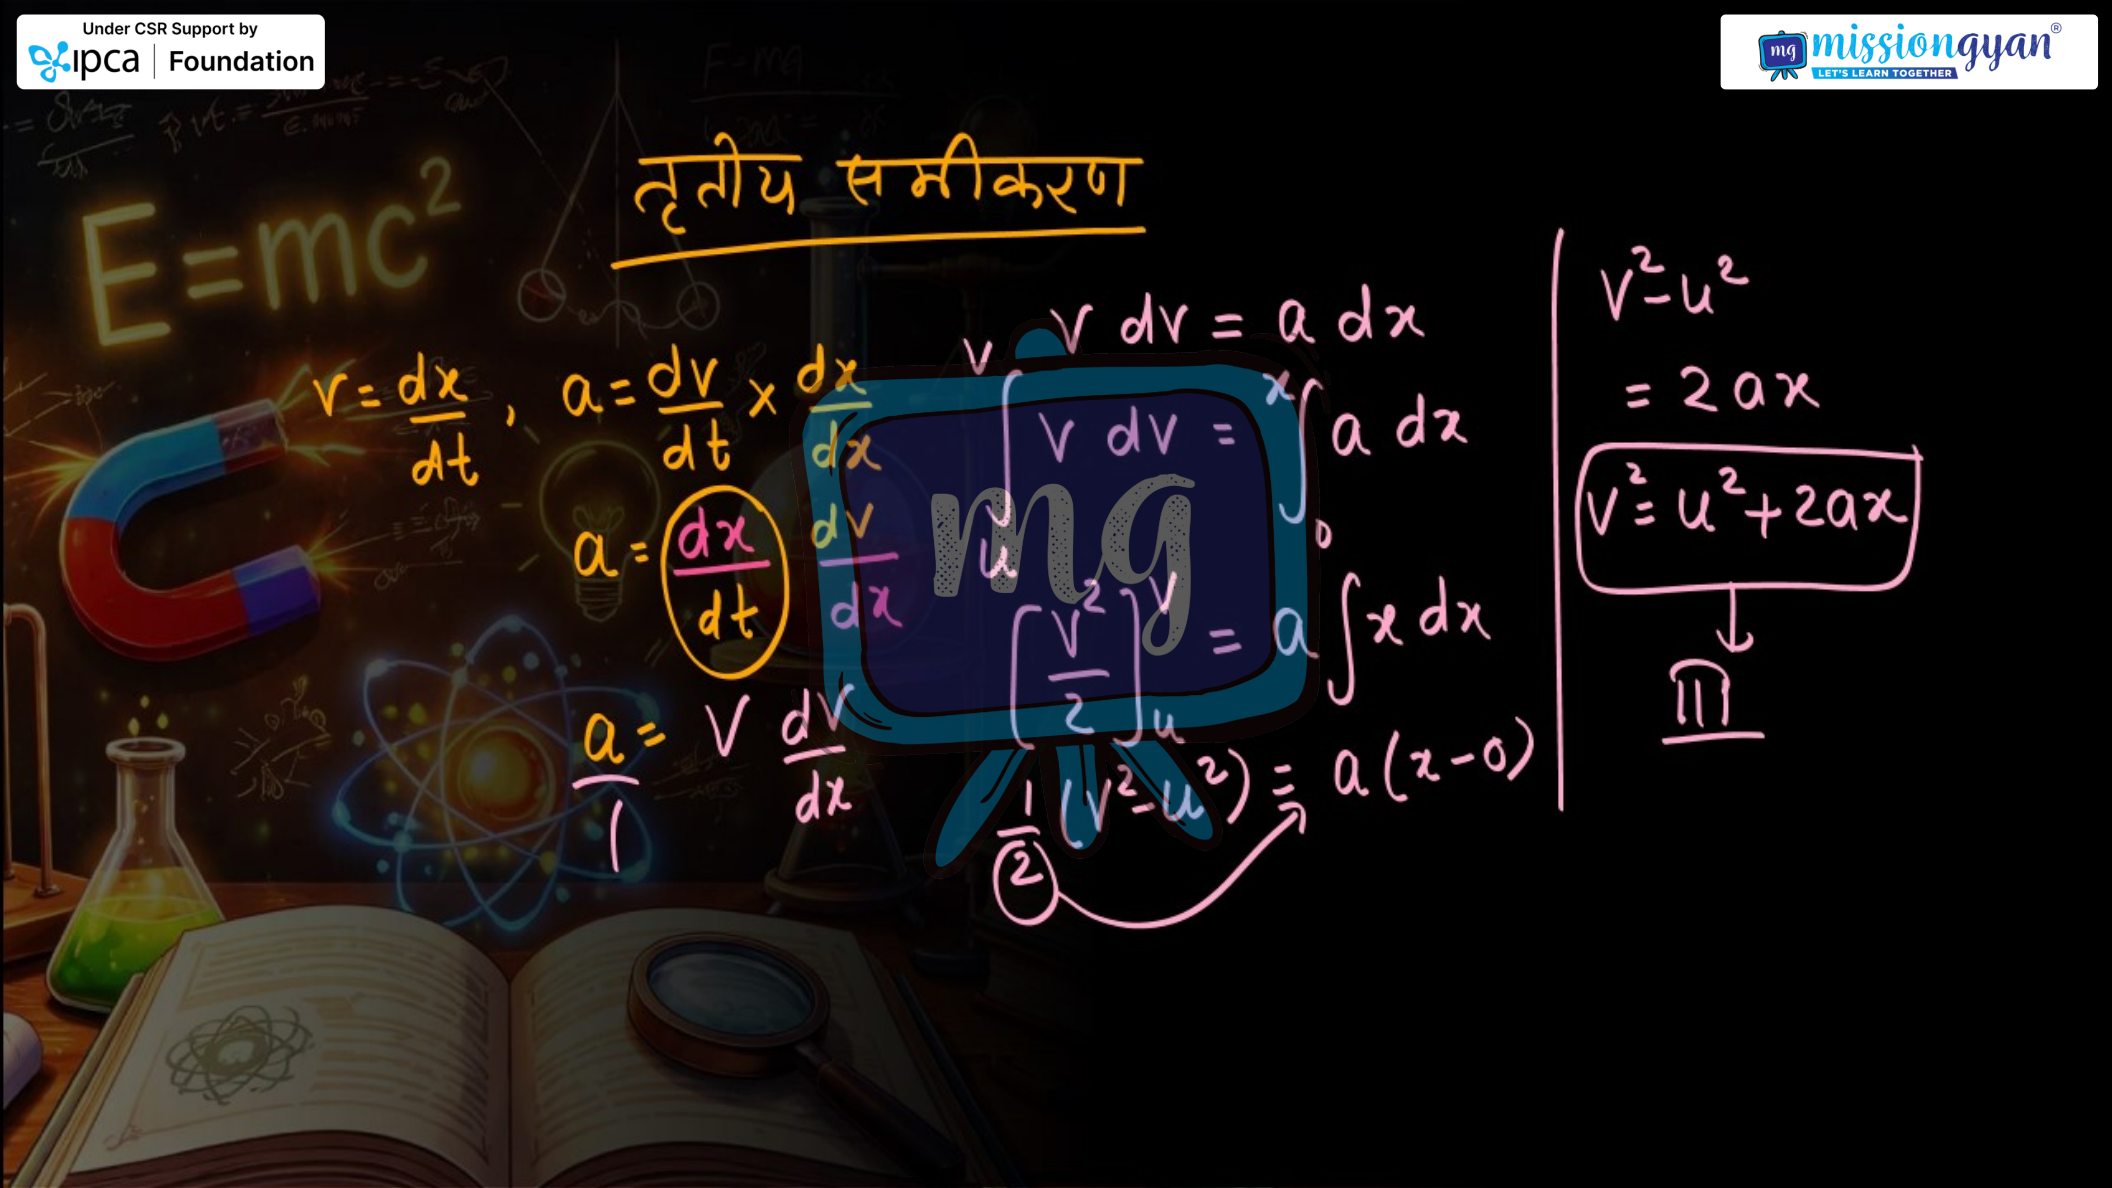 Under CSR Support by
ipca | Foundation
mg missiongyan®
LET'S LEARN TOGETHER
E=mc²
तृतीय समीकरण
v = dx/dt , a = dv/dt × dx/dx
a = dx/dt dv/dx
a/1 = v dv/dx
v dv = a dx
∫ᵤᵛ v dv = ∫₀ˣ a dx
[v²/2]ᵤᵛ = a ∫ x dx
1/2 (v²-u²) = a(x-0)
v²-u²
= 2ax
v² = u²+2ax
III
mg